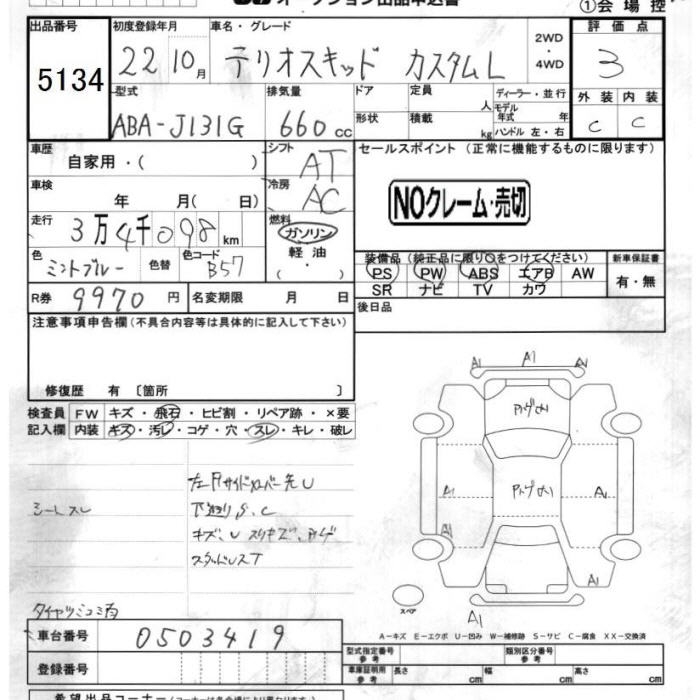 オークション出品申込書
①会場控
出品番号 初度登録年月 車名・グレード 評価点
5134 22 10月 テリオスキッド カスタムL 2WD・4WD 3
型式 排気量 ドア 定員 人 ディーラー・並行 外装 内装
ABA-J131G 660cc 形状 積載 kg モデル年式 年 ハンドル 左・右 C C
車歴 自家用・( ) シフト AT セールスポイント (正常に機能するものに限ります)
車検 年 月( 日) 冷房 AC NOクレーム・売切
走行 3万4千098km 燃料 ガソリン・軽油・( )
色 ミントブルー 色替 色コード B57
装備品 (純正品に限り○をつけてください) 新車保証書
PS PW ABS エアB AW 有・無
SR ナビ TV カワ
R券 9970円 名変期限 月 日 後日品
注意事項申告欄(不具合内容等は具体的に記入して下さい)
修復歴 有 〔箇所 〕
検査員 FW キズ・飛石・ヒビ割・リペア跡・×要
記入欄 内装 キズ・汚レ・コゲ・穴・スレ・キレ・破レ
シートスレ
下廻りS、C
A1 A1 A1
A1 A1
A1
A1
A1
スペア
A-キズ E-エクボ U-凹み W-補修跡 S-サビ C-腐食 XX-交換済
車台番号 0503419
登録番号
型式指定番号 参考 類別区分番号 参考
車庫証明用 参考 長さ cm 幅 cm 高さ cm
希望出品コーナー